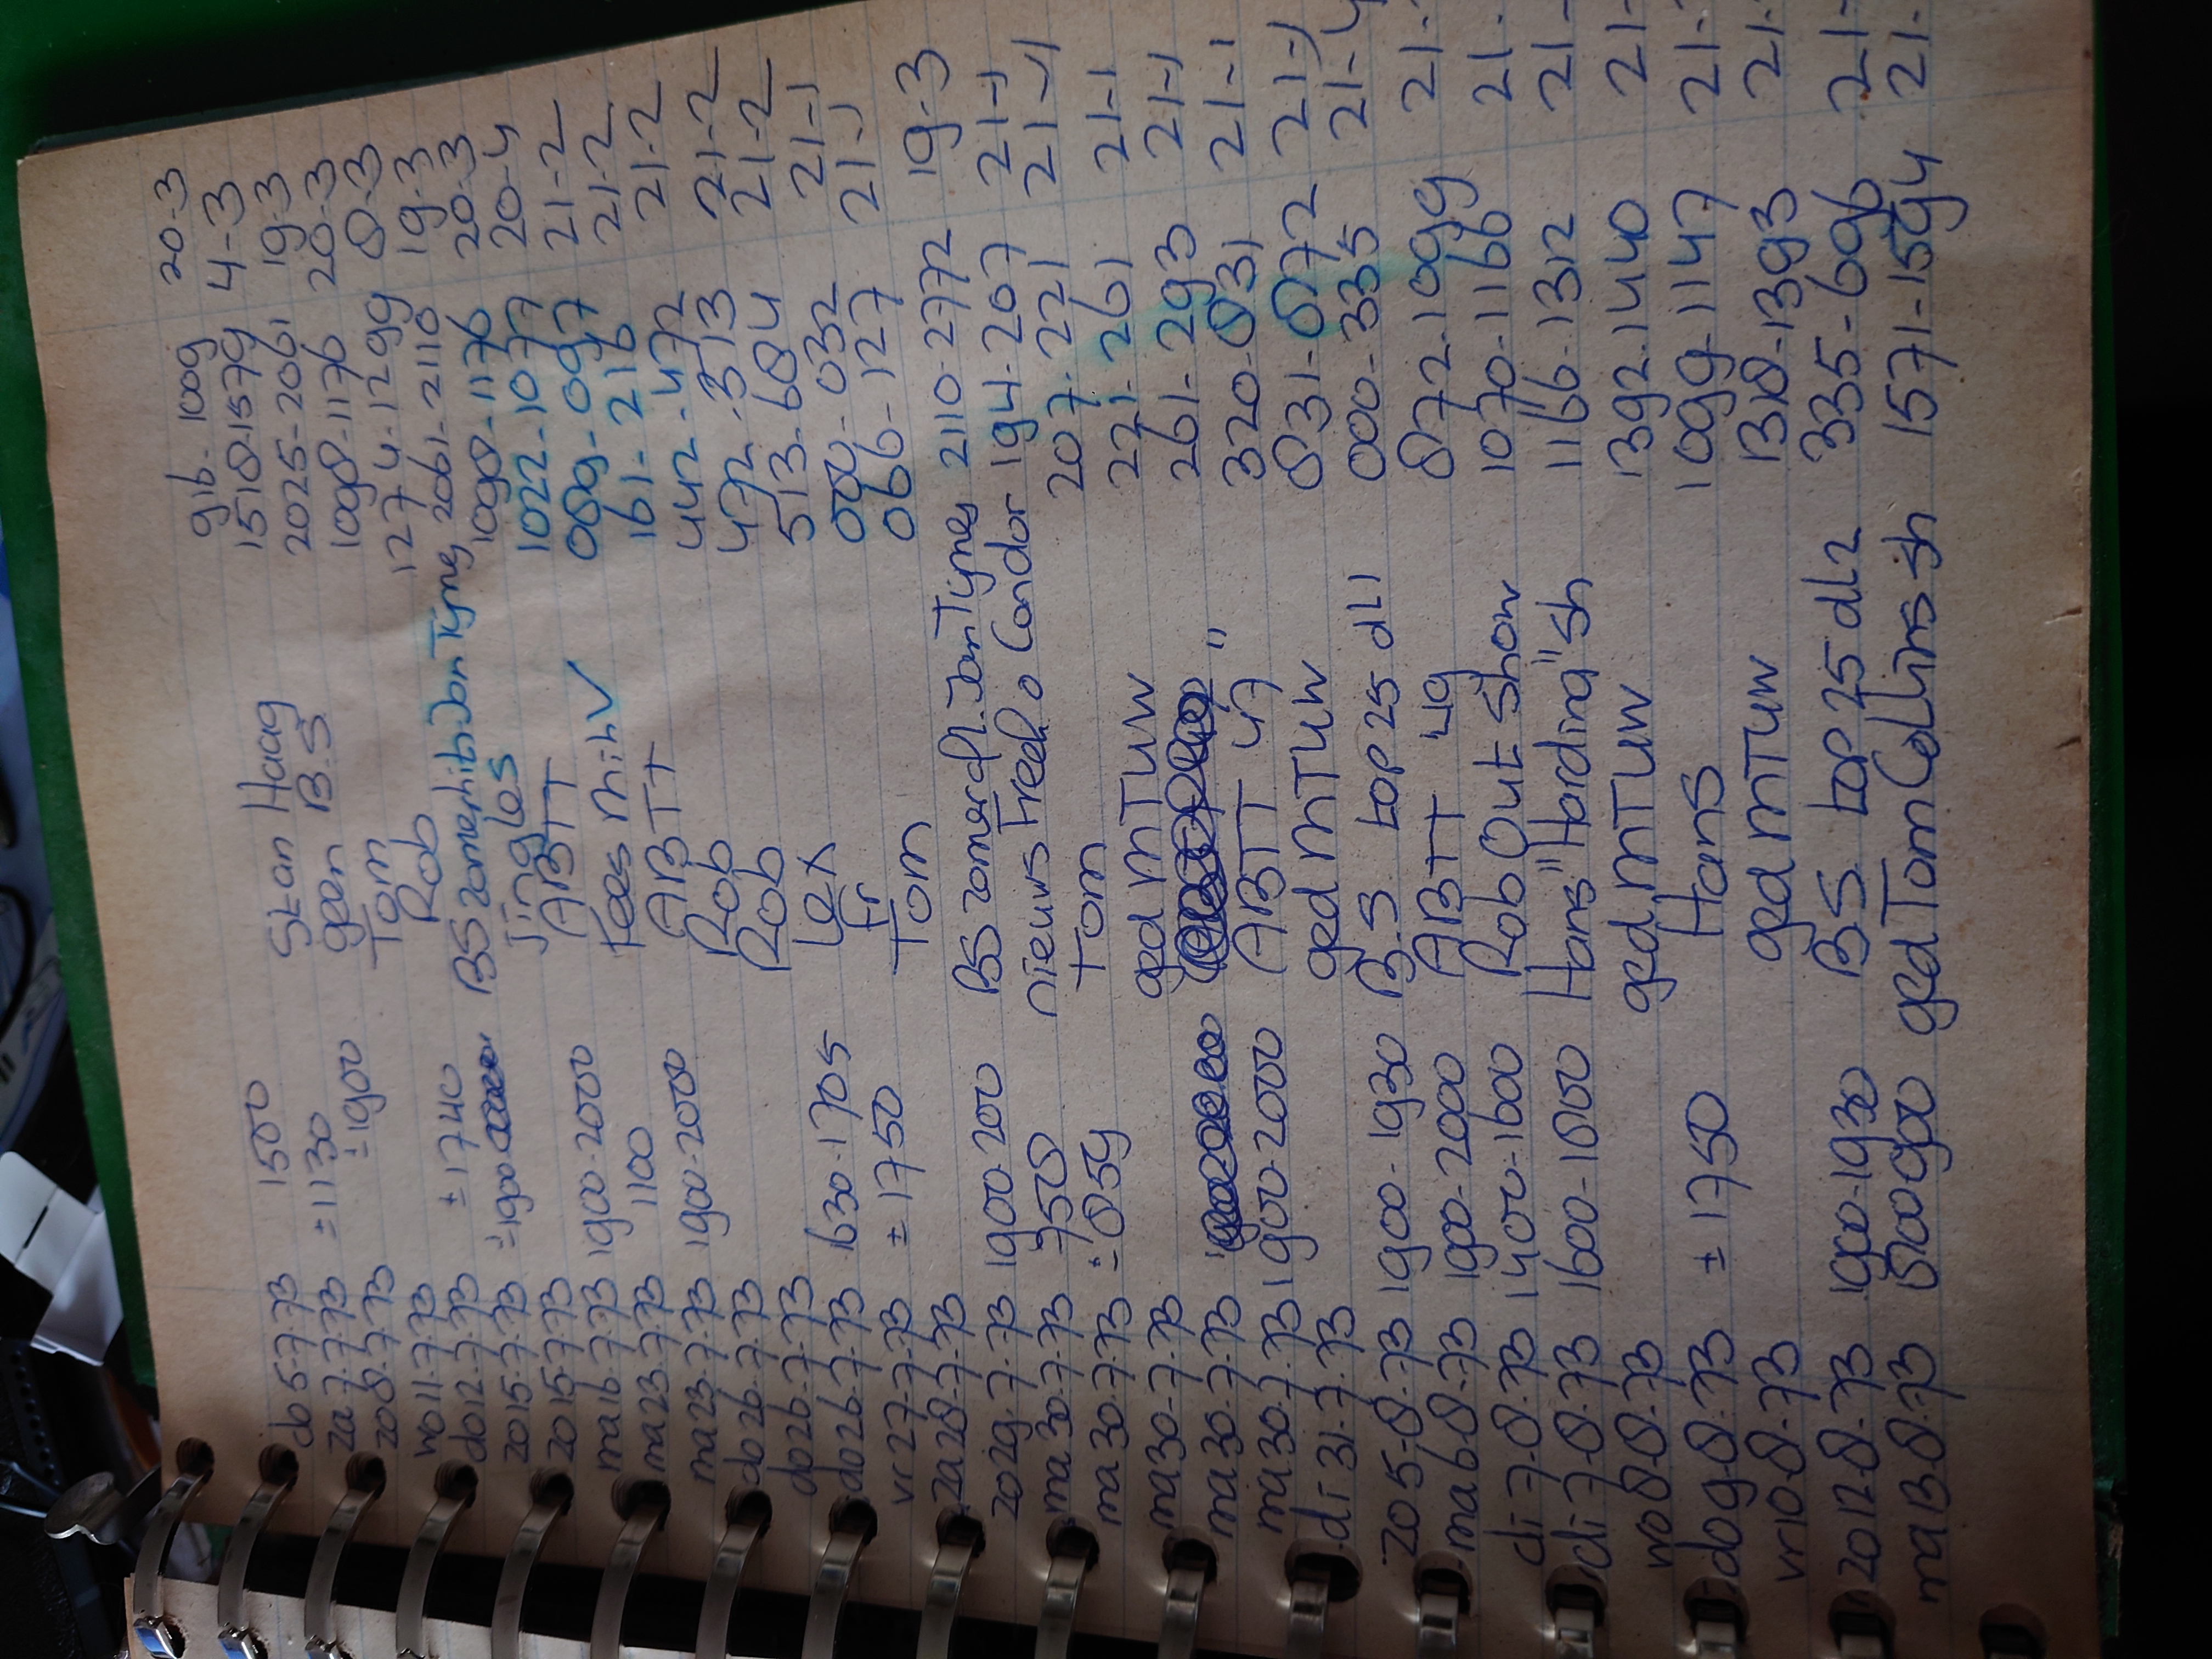 do 5-7-73 916-1009 20-3
za 7-7-73 1500 Stan Haag 1518-1579 4-3
zo 8-7-73 ±1130 geen B.S 2025-2061 19-3
wo 11-7-73 ±1900 Tom 1098-1176 20-3
do 12-7-73 ±1740 Rob 1274-1299 8-3
zo 15-7-73 ±1900 BS zomerhitb. Jan Tyme 2061-2110 19-3
zo 15-7-73 jingles 1098-1176 20-3
ma 16-7-73 1900-2000 ABTT 1022-1077 20-4
ma 23-7-73 1100 Kees 089-097 21-2
ma 23-7-73 1900-2000 ABTT 161-216 21-2
do 26-7-73 Rob 442-472 21-2
do 26-7-73 Rob 472-513 21-2
do 26-7-73 1630-1705 Lex 513-684 21-2
vr 27-7-73 ±1750 Fr 000-032 21-1
za 28-7-73 Tom 066-127 21-1
zo 29-7-73 1900-200 BS zomerafl. Jan Tyme 2110-2772 19-3
ma 30-7-73 758 nieuws Fred + o Condor 194-207 21-1
ma 30-7-73 ±859 Tom 207-221 21-1
ma 30-7-73 ged MTUW 221-261 21-1
ma 30-7-73 " 261-293 21-1
ma 30-7-73 1900-2000 ABTT 47 320-831 21-1
di 31-7-73 ged MTUW 831-872 21-1
zo 5-8-73 1900-1930 B.S top 25 dl1 000-335 21-4
ma 6-8-73 1900-2000 ABTT '49 872-1099 21-
di 7-8-73 1400-1600 Rob Out Show 1070-1166 21-
di 7-8-73 1600-1800 Hans "Harding" sh 1166-1312 21-
wo 8-8-73 ged MTUW 1392-1440 21-
do 9-8-73 ±1750 Hans 1099-1147 21-
vr 10-8-73 ged MTUW 1318-1393 21-
zo 12-8-73 1900-1930 BS top 25 dl2 335-696 21-
ma 13-8-73 800-900 ged Tom Collins sh 1571-1594 21-